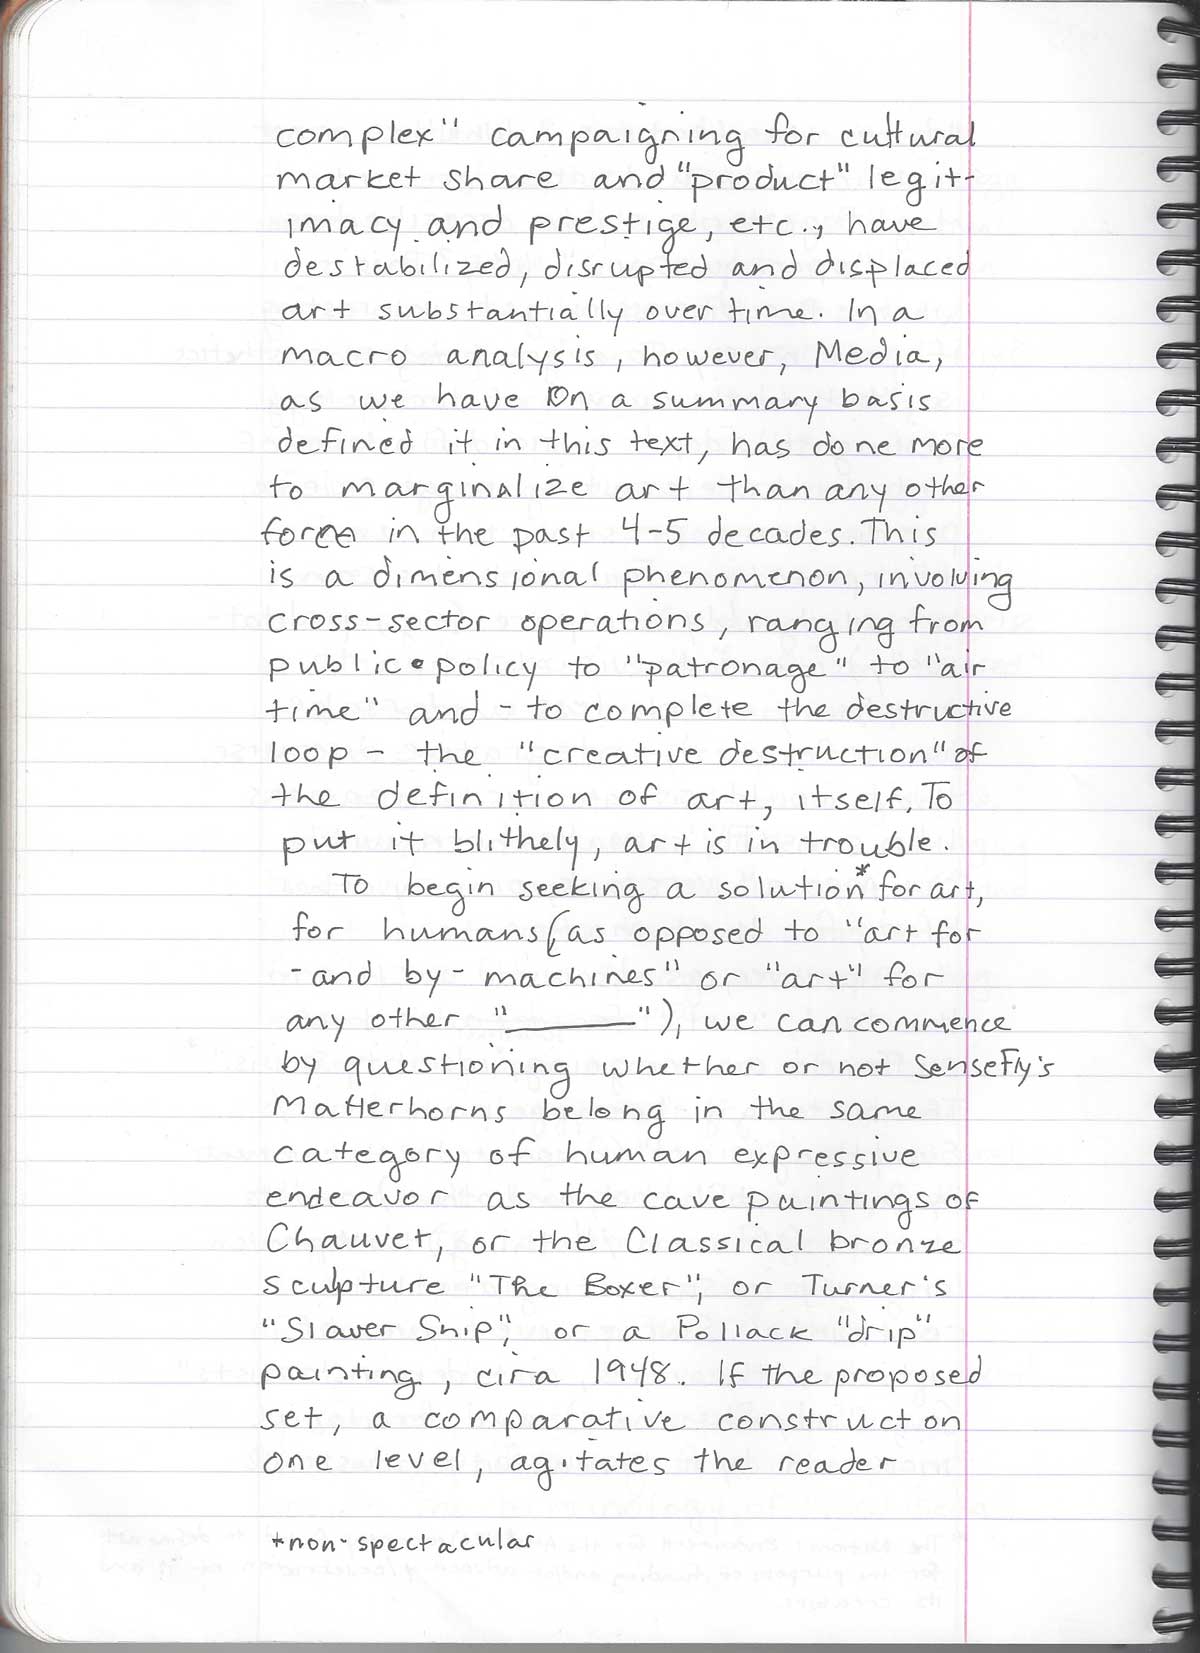 complex" campaigning for cultural
market share and "product" legit-
imacy and prestige, etc., have
destabilized, disrupted and displaced
art substantially over time. In a
macro analysis, however, Media,
as we have on a summary basis
defined it in this text, has done more
to marginalize art than any other
force in the past 4-5 decades. This
is a dimensional phenomenon, involving
cross-sector operations, ranging from
public policy to "patronage" to "air
time" and - to complete the destructive
loop - the "creative destruction" of
the definition of art, itself. To
put it blithely, art is in trouble.
To begin seeking a solution* for art,
for humans (as opposed to "art for
-and by- machines" or "art" for
any other "______"), we can commence
by questioning whether or not SenseFly's
Matterhorns belong in the same
category of human expressive
endeavor as the cave paintings of
Chauvet, or the Classical bronze
sculpture "The Boxer", or Turner's
"Slaver Ship", or a Pollack "drip"
painting, cira 1948. If the proposed
set, a comparative construct on
one level, agitates the reader
*non-spectacular